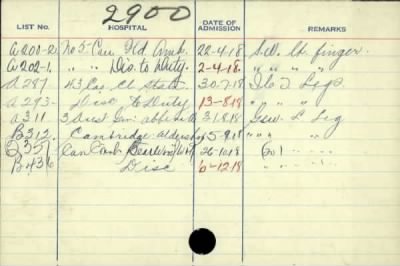 2900
LIST NO. HOSPITAL DATE OF ADMISSION REMARKS
A200-2 No 5 Can Fd Amb. 22-4-18 Sev. Lt. finger.
A202-1. " " Dis. to Duty. 2-4-18. " " "
A287 43 Cas. Cl. Statn. 30-7-18 I.C.T. Legs
A293- Disc to Duty 13-8-18 " " "
A311 3 Aust Gen: Abbeville 31.8.18 L Leg
B312. Cambridge Aldershot 5-9-18 " " "
B351 Can Conv 26-10-18 Do! " " "
B436 Disc 6-12-18